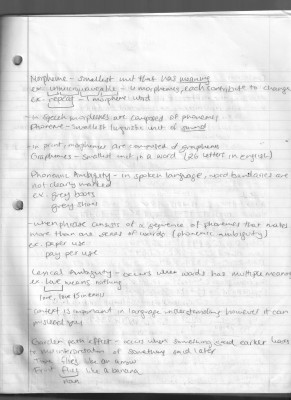 Morpheme - smallest unit that has meaning
ex. unmicrowaveable - 4 morphemes, each contribute to change
ex. repeat - 1 morpheme word
- in speech morphemes are composed of phonemes
Phoneme - smallest linguistic unit of sound
- in print, morphemes are composed of graphemes
Graphemes - smallest unit in a word (26 letters in english)
Phonemic Ambiguity - in spoken language, word boundaries are
not clearly marked
ex. grey boots
- when phrase consist of a sequence of phonemes that makes
more than one series of words (phonemic ambiguity)
ex. paper use
pay per use
Lexical Ambiguity - occurs when words has multiple meaning
ex. love means nothing
love, love is in tennis
context is important in language understanding however it can
mislead you
Garden path effect - occurs when something said earlier leads
to misinterpretation of something said later
Time flies like an arrow
Fruit flies like a banana
noun